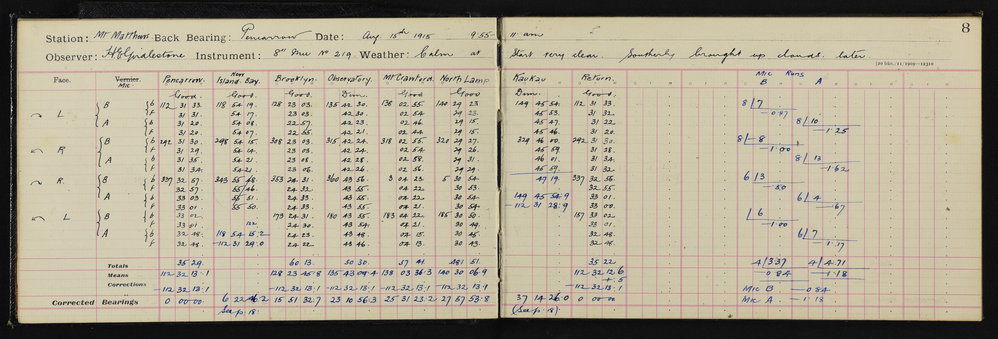 8
Station: Mt Matthews Back Bearing: Pencarrow Date: Aug. 15th 1915 9.55 - 11 am
Observer: H E Girdlestone Instrument: 8" Mic No 219 Weather: Calm at Start very clear. Southerly brought up clouds later.
Face. Vernier. Mic. Pencarrow. New Island Bay. Brooklyn. Observatory. Mt Crawford. North Lamp Kaukau Return. Mic Runs
B A
Good. Good. Good. Dim. Good. Good Dim. Good.
L B b 112 31 33. 118 54 19. 128 23 03. 135 42 30. 138 02 55. 140 29 23 149 45 54. 112 31 33. 8 /7
f 31 31. 54 17. 23 03. 42 30. 02 54. 29 23. 45 53. 31 32 -0.87
A b 31 20. 54 08. 22 57. 42 23. 02 46. 29 15. 45 47. 31 22 8/ 10
f 31 20. 54 07. 22 55. 42 21. 02 44. 29 15. 45 46. 31 20 -1.25
R B b 292 31 30. 298 54 15. 308 23 03. 315 42 24. 318 02 55. 320 29 27. 329 46 00. 292 31 30. 8/-8
f 31 29. 54 14. 23 03. 42 24. 02 54. 29 26. 45 59. 31 28. -1.00
A b 31 35. 54 21. 23 08. 42 28. 02 58. 29 31. 46 01. 31 34. 8/ 13
f 31 34. 54 21. 23 06. 42 26. 02 56. 29 29. 45 59. 31 32 -1.62
R. B b 337 32 57. 343 55 58. 353 24 31. 360 43 56. 3 04 23. 5 30 54. 47 19. 337 32 56. 6 /3
f 32 57. 55 46. 24 32. 43 55. 04 22. 30 53. 32 55. -.50
A b 33 03. 55 51. 24 33. 43 55. 04 22. 30 54. 149 45 54.9 33 01. 6/ 4
f 33 01. 55 50. 24 33. 43 55. 04 21. 30 54. -112 31 28.9 33 00. -.67
L B b 33 02. 173 24 31. 180 43 55. 183 04 22. 185 30 50. 157 33 02. /6
f 33 01. 24 30. 43 54. 04 21. 30 49. 33 01. -1.00
A b 32 48. 118 54 15.2 24 23. 43 48. 04 15. 30 45. 32 48. 6/ 7
f 32 48. -112 31 29.0 24 22. 43 46. 04 13. 30 43. 32 48. -1.17
Totals 35 29. 60 13. 50 30. 57 41. 481 51. 35 22. 4/3.37 4/4.71
Means 112 32 13.1 128 23 45.8 135 43 09.4 138 03 36.3 140 30 06.9 112 32 12.6 -0.84 -1.18
Corrections +.5
-112 32 13.1 -112 32 13.1 -112 32 13.1 -112 32 13.1 -112 32 13.1 -112 32 13.1 Mic B -0.84
Corrected Bearings 0 00 00 6 22 46.2 15 51 32.7 23 10 56.3 25 31 23.2 27 57 53.8 37 14 26.0 0 00 00 Mic A -1.18
See p. 18. (See p. 18)